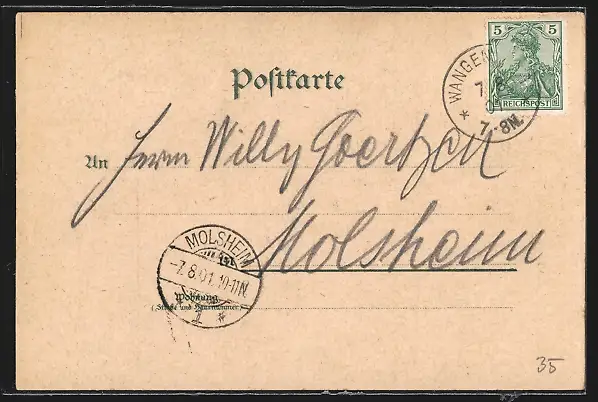 5 5
REICHSPOST
WANGEN
7
01
7-8N.
Postkarte
An Herrn Willy Goertzen
Molsheim
MOLSHEIM
-7.8.01.10-11N.
Wohnung
(Straße und Hausnummer)
35